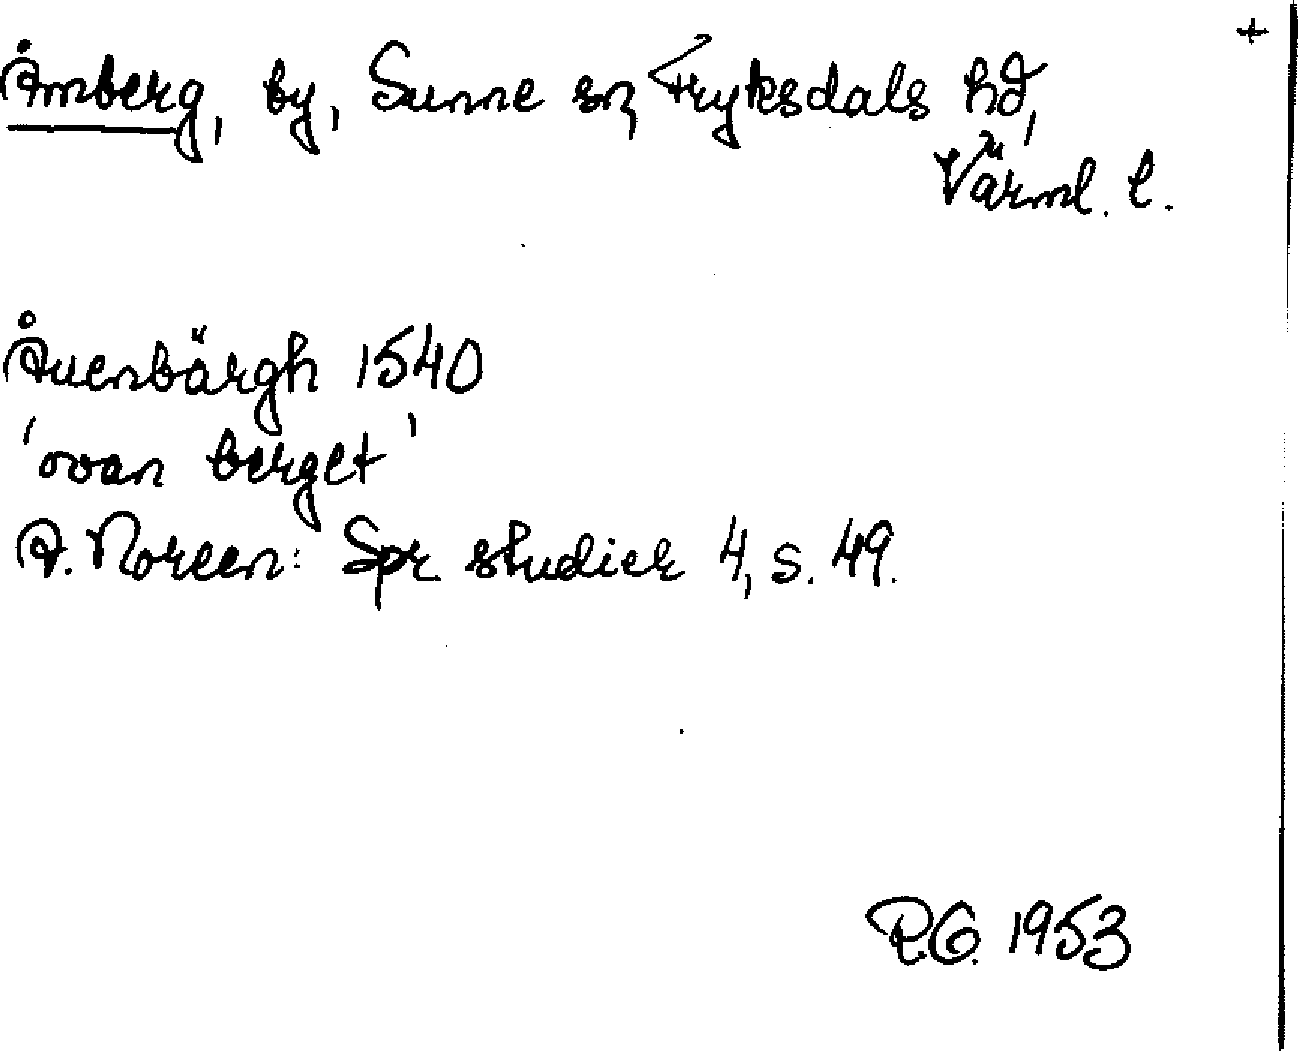 +
Åmberg, by, Sunne sn, Fryksdals hd,
Värml. l.
Åuenbärgh 1540
'ovan berget'
A. Noreen: Spr. studier 4, s. 49.
R.G. 1953